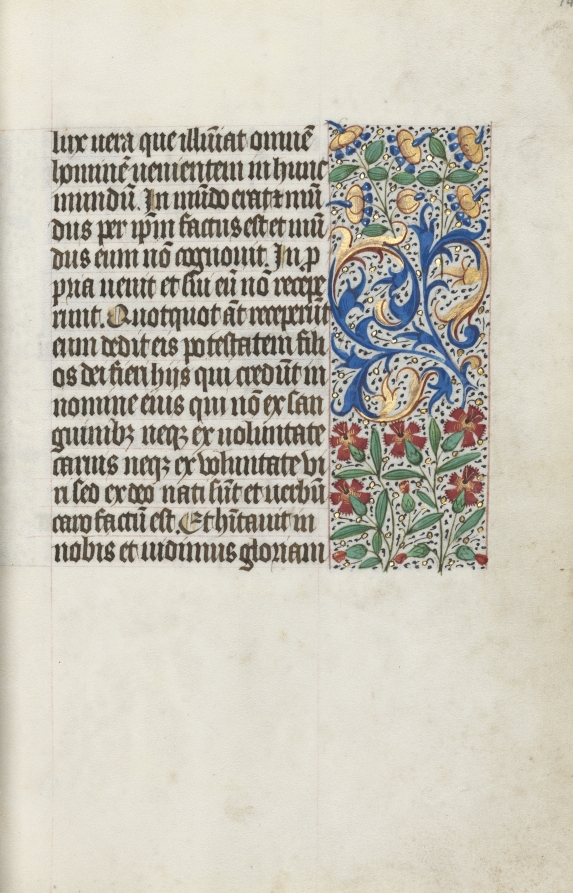 lux uera que illūiat omnē
hominē uenientem in hunc
mundū. In mūdo erat ⁊ mū
dus per ip̄m factus est et mū
dus eum nō cognouit. In p
pria uenit et sui eū nō recepe
runt. Quotquot āt receperūt
eum dedit eis potestatem fili
os dei fieri hijs qui credūt in
nomine eius qui nō ex san
guinibꝫ neqꝫ ex uoluntate
carnis neqꝫ ex voluntate vi
ri sed ex deo nati sūt et uerbū
caro factū est. Et hītauit in
nobis et uidimus gloriam